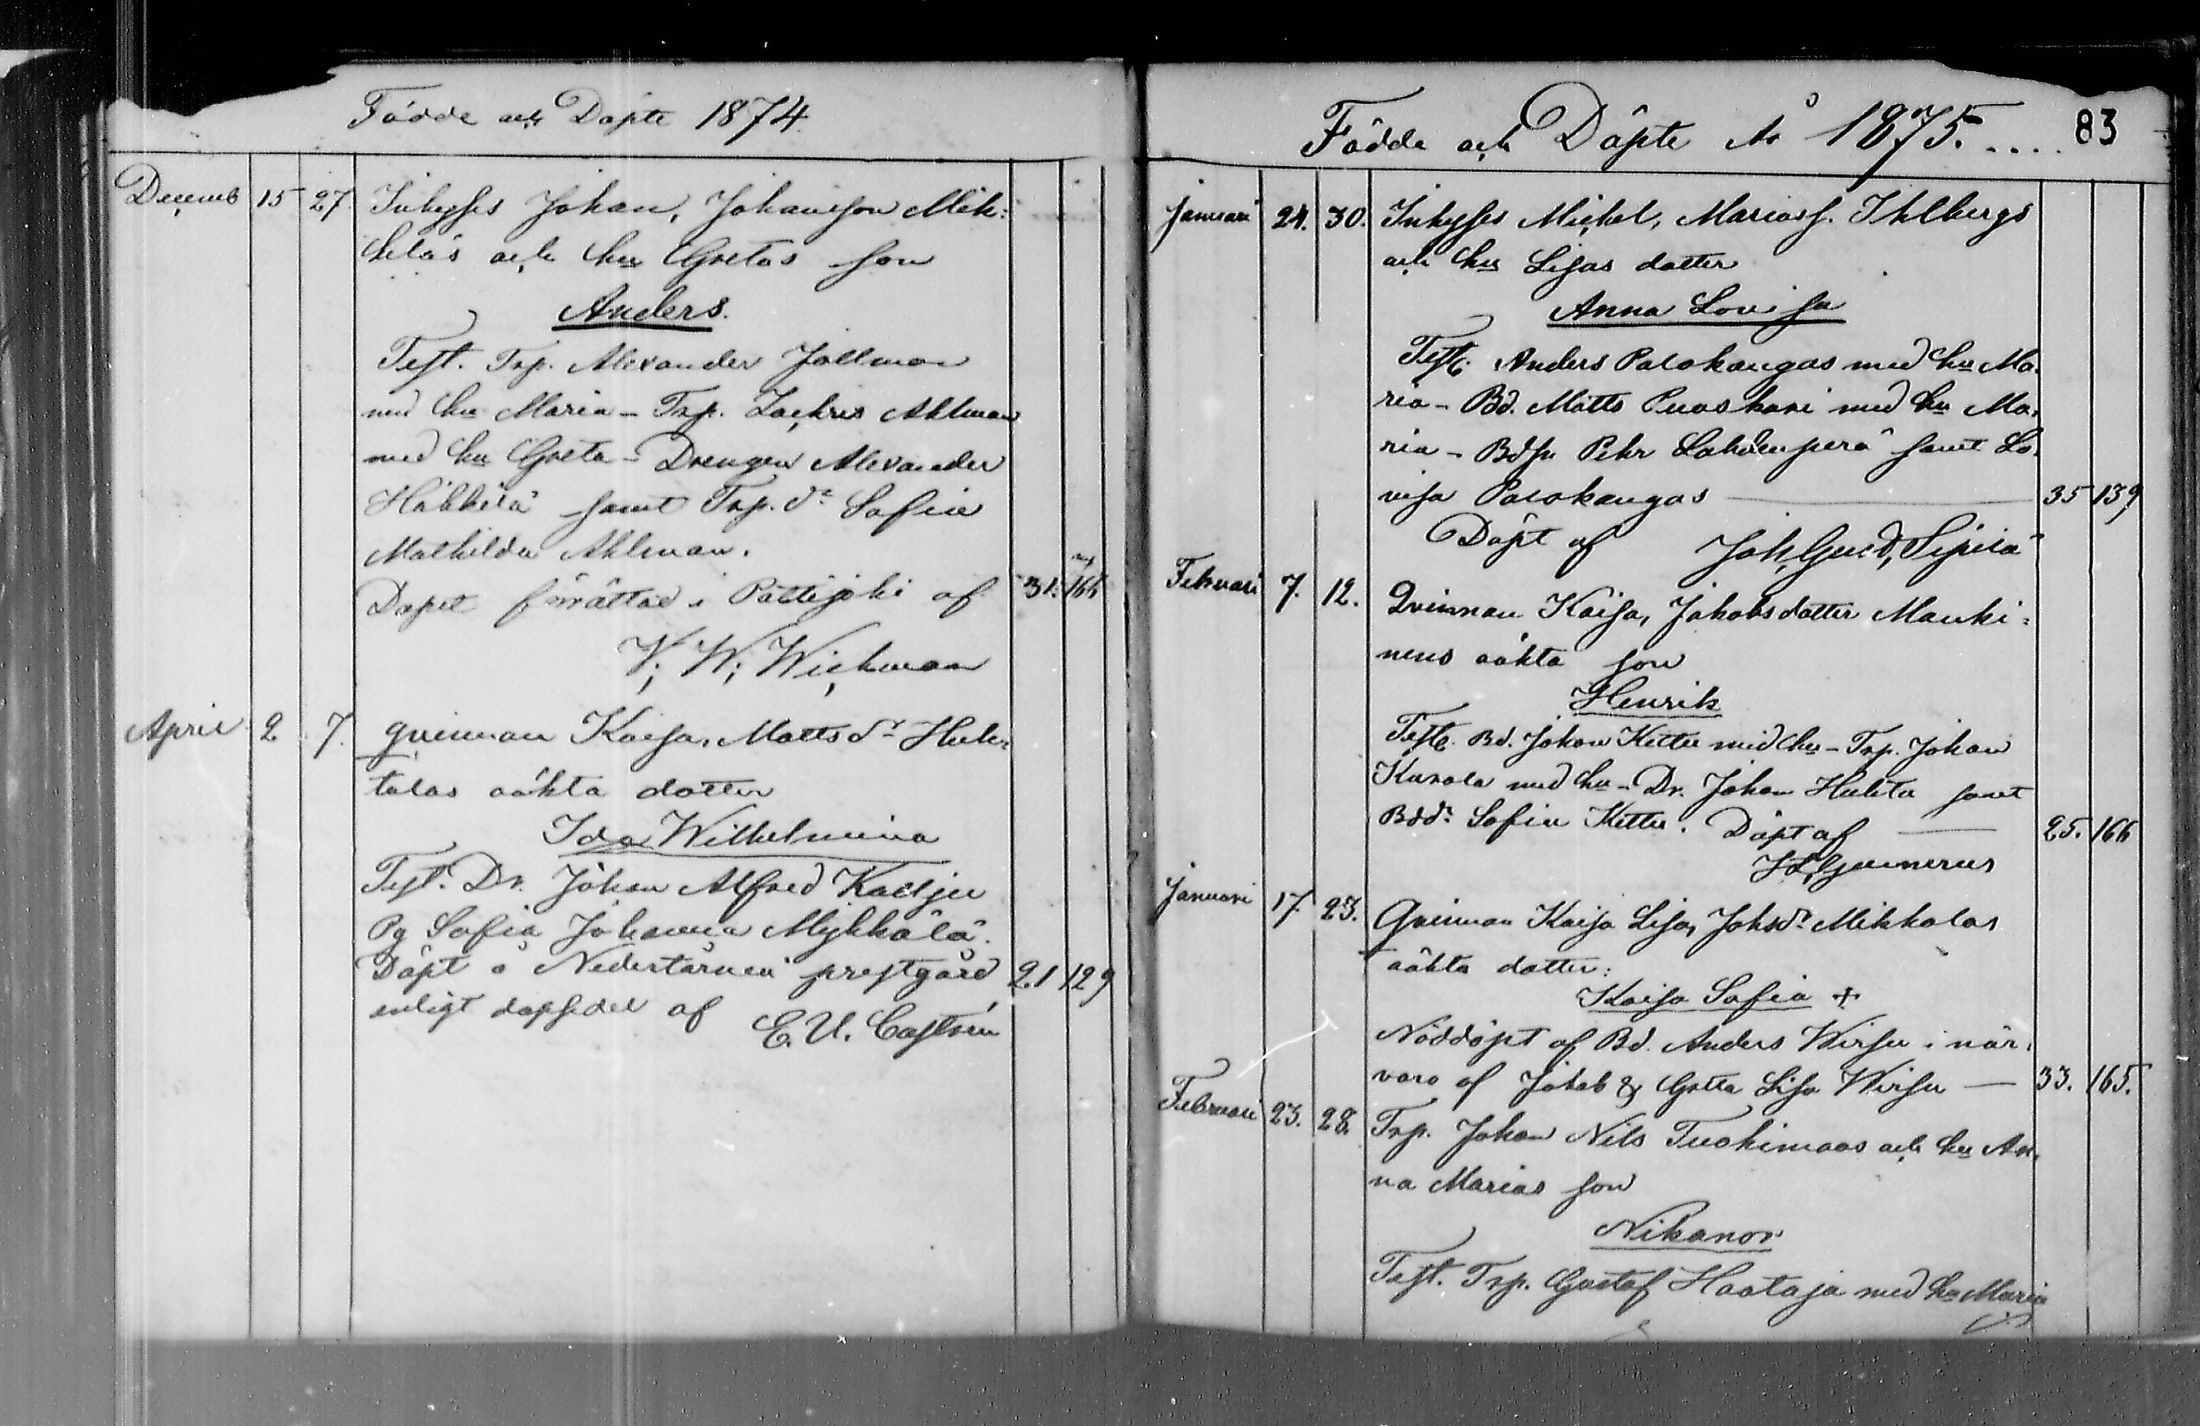 Födde och Döpte 1874.
Decemb 15 27. Inhyses Johan, Johansson Mik=
kelas och hu Gretas son
Anders.
Test. Trp. Alexander Jallman
med hu Maria - Trp. Zachris Ahlman
med hu Greta - Drengen Alexander
samt Trp. dr Sofia
Mathilda Ahlman.
Dopet förrättad i Pattijoki af 31. 166
V. W. Wichman
April 2 7. qvinnan Kaisa, Matts dr Huh=
talas oäkta dotter
Ida Wilhelmina
Test. Dr. Johan Alfred Kadju
Pg Sofia Johanna Mykkälä.
Döpt å Nedertårneå prestgård 21 129
enligt dopsedel af E. U. Castrén
Födde och Döpte År 1875.... 83
Januari 24. 30. Inhyses Mickel, Mariass. Ihlbergs
och hus Lisas dotter
Anna Lovisa
Test. Anders Palokangas med hu Ma=
ria - Bd. Matts Puoskari med hu Ma=
ria - Bdsn Pehr Lahdenperä samt Lo=
visa Palokangas 35 139
Döpt af Joh. Gust. Sipilä
Februari 7. 12. Qvinnan Kaisa, Jakobsdotter Manki=
nens oäkta son
Henrik
Test. Bd. Johan Kettu med hu - Trp. Johan
Karola med hu - Dr. Johan Huhta samt
Bddr Sofia Kettu. Döpt af 25. 166
Januari 17. 23. Qvinnan Kaisa Lisa, Johsdr Mikkolas
oäkta dotter:
Kaisa Sofia +
Nöddöpt af Bd. Anders Wirsu i när=
varo af Jakob & Greta Lisa Wirsu 33. 165.
Februari 23. 28. Trp. Johan Nils Tuohimaas och hu An=
na Marias son
Nikanor
Test. Trp. Gustaf Haataja med hu Maria